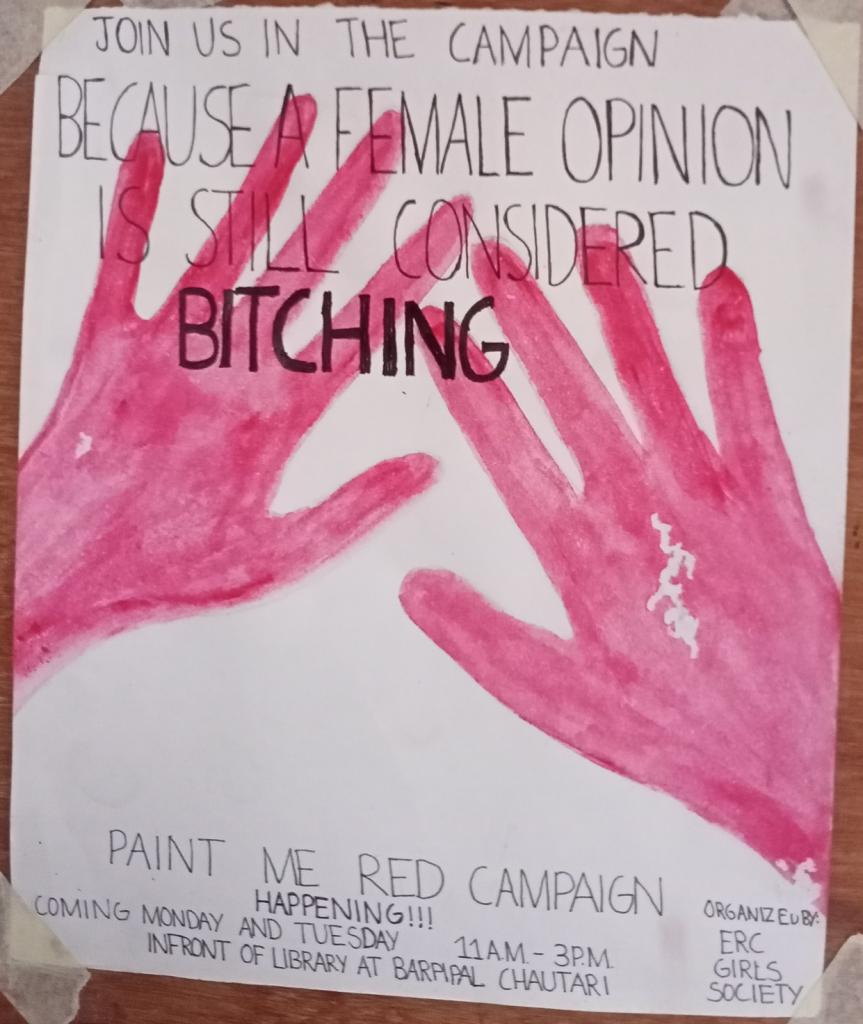 JOIN US IN THE CAMPAIGN
BECAUSE A FEMALE OPINION
IS STILL CONSIDERED
BITCHING
PAINT ME RED CAMPAIGN
HAPPENING!!!
COMING MONDAY AND TUESDAY 11A.M. - 3P.M.
INFRONT OF LIBRARY AT BARPIPAL CHAUTARI
ORGANIZED BY:
ERC
GIRLS
SOCIETY